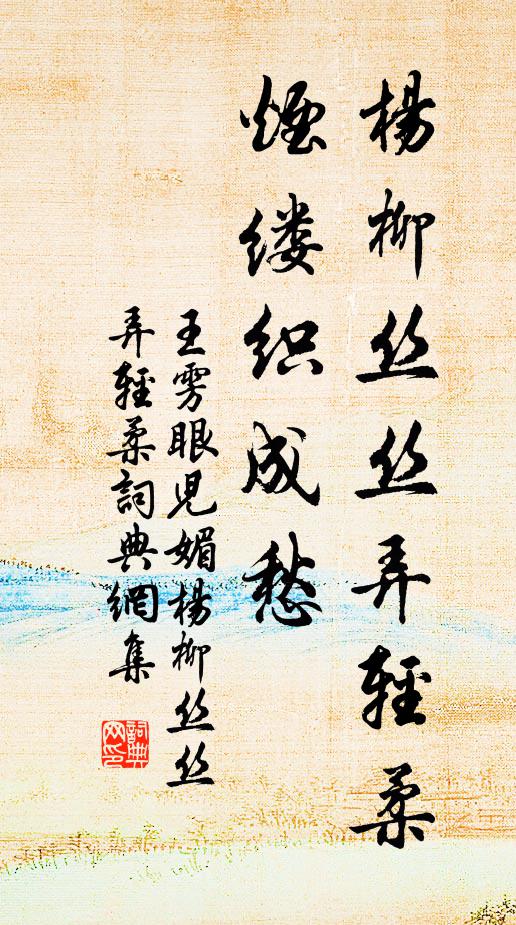 楊柳丝丝弄輕柔
煙缕织成愁
王雱眼児媚楊柳丝丝
弄輕柔詞典網集
詞典
网印